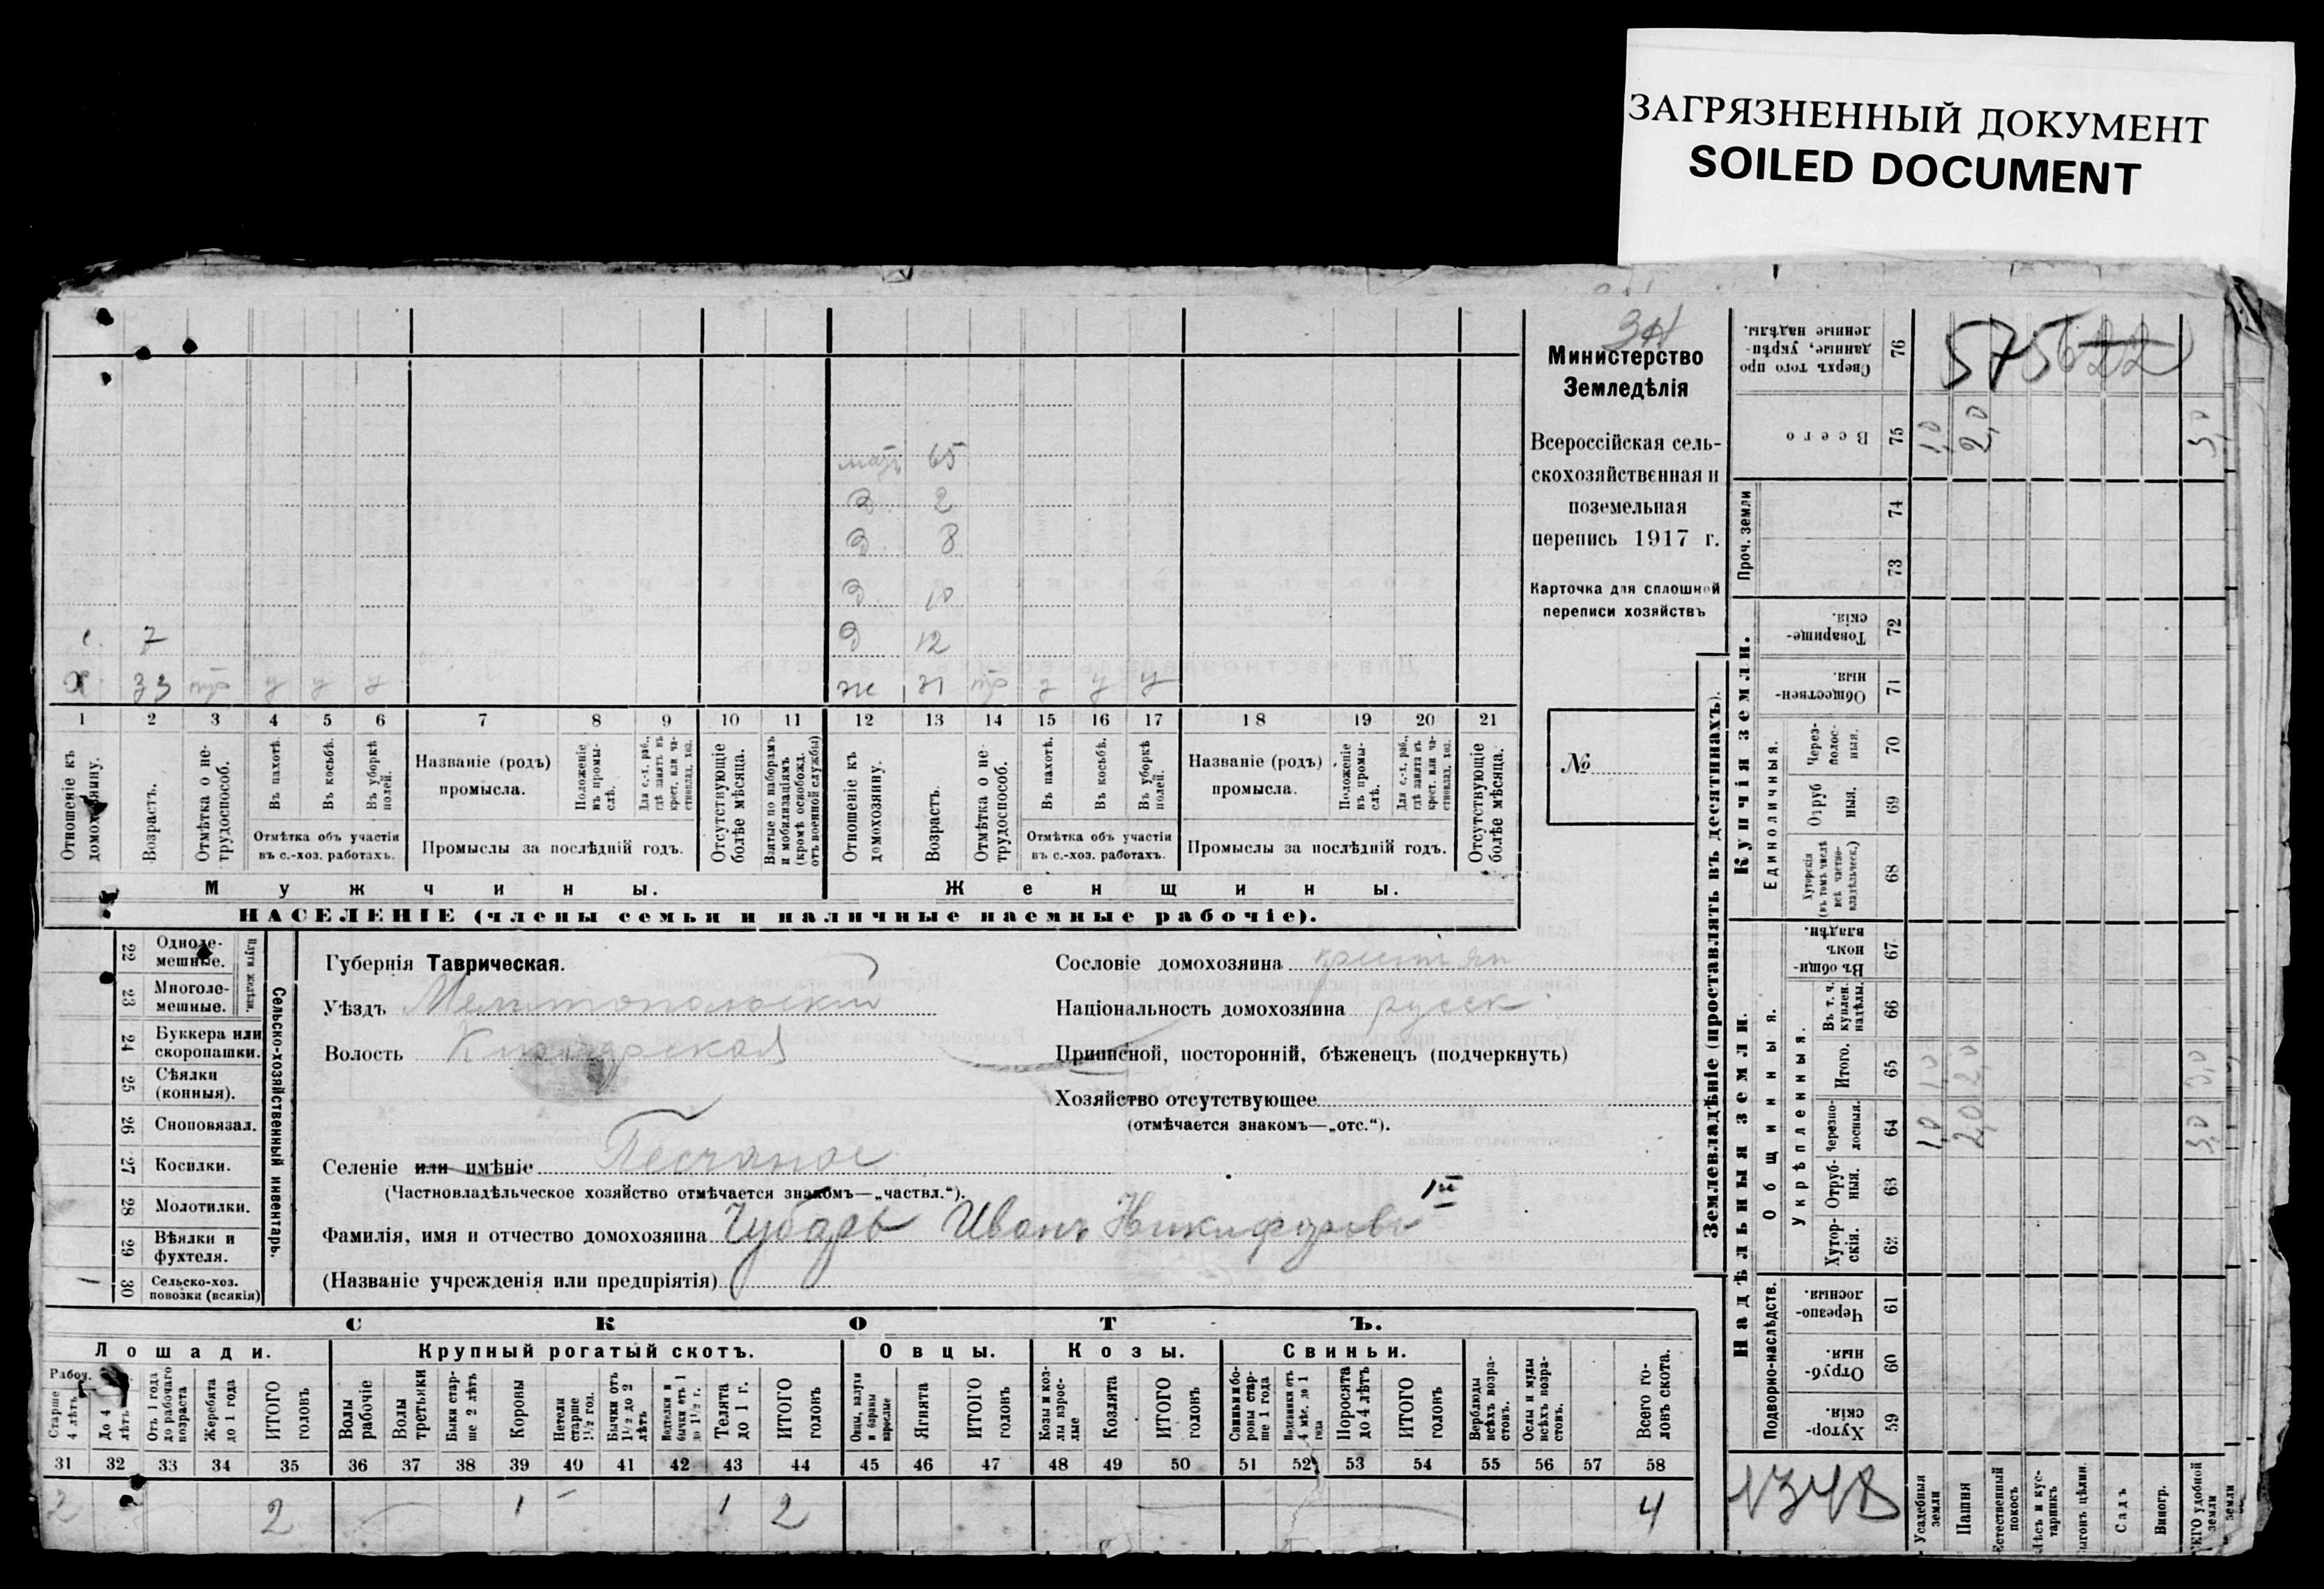 ЗАГРЯЗНЕННЫЙ ДОКУМЕНТ
SOILED DOCUMENT
мать 65
д. 2
д. 8
д. 10
с. 7 д 12
Х. 33 у у у ж 31 у у у
1 2 3 4 5 6 7 8 9 10 11 12 13 14 15 16 17 18 19 20 21
Отношеніе къ домохозяину.
Возрастъ.
Отмѣтка о нетрудоспособ.
Въ пахотѣ.
Въ косьбѣ.
Въ уборкѣ полей.
Отмѣтка объ участіи въ с.-хоз. работахъ.
Названіе (родъ) промысла.
Положеніе въ промыслѣ.
Для с.-х. раб., гдѣ занятъ въ крест. или частновлад. хоз.
Промыслы за послѣдній годъ.
Отсутствующіе болѣе мѣсяца.
Взятые по наборамъ и мобилизаціямъ (кромѣ освобожд. отъ военной службы)
Отношеніе къ домохозяину.
Возрастъ.
Отмѣтка о нетрудоспособ.
Въ пахотѣ.
Въ косьбѣ.
Въ уборкѣ полей.
Отмѣтка объ участіи въ с.-хоз. работахъ.
Названіе (родъ) промысла.
Положеніе въ промыслѣ.
Для с.-х. раб., гдѣ занята въ крест. или частновлад. хоз.
Промыслы за послѣдній годъ.
Отсутствующіе болѣе мѣсяца.
Мужчины. Женщины.
НАСЕЛЕНІЕ (члены семьи и наличные наемные рабочіе).
Министерство
Земледѣлія
Всероссійская сель-
скохозяйственная и
поземельная
перепись 1917 г.
Карточка для сплошной
переписи хозяйствъ
№
22 Однолемешные.
23 Многолемешные.
Плуги желѣзн.
24 Буккера или скоропашки.
25 Сѣялки (конныя).
26 Сноповязал.
27 Косилки.
28 Молотилки.
29 Вѣялки и фухтеля.
30 Сельско-хоз. повозки (всякія) 1
Сельско-хозяйственный инвентарь.
Губернія Таврическая.
Уѣздъ Мелитопольскій
Волость
Селеніе или имѣніе Песчаное
(Частновладѣльческое хозяйство отмѣчается знакомъ—„частвл.“).
Фамилія, имя и отчество домохозяина Чубарь Иванъ Никифоровъ III
(Названіе учрежденія или предпріятія)
Сословіе домохозяина крестьян
Національность домохозяина русск.
Приписной, посторонній, бѣженецъ (подчеркнуть)
Хозяйство отсутствующее
(отмѣчается знакомъ—„отс.“).
СКОТЪ.
Лошади. Крупный рогатый скотъ. Овцы. Козы. Свиньи.
Рабоч.
Старше 4 лѣтъ
До 4 лѣтъ
Отъ 1 года до рабочаго возраста
Жеребята до 1 года
ИТОГО головъ
Волы рабочіе
Волы третьяки
Быки старше 2 лѣтъ
Коровы
Нетели старше 1½ год.
Бычки отъ 1½ до 2 лѣтъ
Нетелки и бычки отъ 1 до 1½ г.
Телята до 1 г.
ИТОГО головъ
Овцы, валухи и бараны взрослые
Ягнята
ИТОГО головъ
Козы и козлы взрослые
Козлята
ИТОГО головъ
Свиньи и боровы старше 1 года
Подсвинки отъ 4 мѣс. до 1 года
Поросята до 4 лѣтъ
ИТОГО головъ
Верблюды всѣхъ возрастовъ.
Ослы и мулы всѣхъ возрастовъ.
Всего головъ скота.
31 32 33 34 35 36 37 38 39 40 41 42 43 44 45 46 47 48 49 50 51 52 53 54 55 56 57 58
2 2 1 1 2 4
Землевладѣніе (проставлять въ десятинахъ).
Надѣльныя земли. Купчія земли. Проч. земли
Подворно-наслѣдств. Общинныя. Укрѣпленныя. Единоличныя.
76 Сверхъ того проданные, укрѣпленные надѣлы. 575622
75 Всего 1,0 2,0 3,0
74
73
72 Товарищескія.
71 Общественныя.
70 Черезполосныя.
69 Отрубныя.
68 Хуторскія (въ томъ числѣ всѣ частновладѣльческ.)
67 Въ общинномъ владѣн.
66 Въ т. ч. куплен. надѣлы.
65 Итого. 1,0 2,0 3,0
64 Черезполосныя. 1,0 2,0 3,0
63 Отрубныя.
62 Хуторскія.
61 Черезполосныя.
60 Отрубныя.
59 Хуторскія.
1348
Усадебныя земли
Пашня
Естественный покосъ
Лѣсъ и кустарникъ
Выгонъ цѣлин.
Садъ
Виногр.
ВСЕГО удобной земли